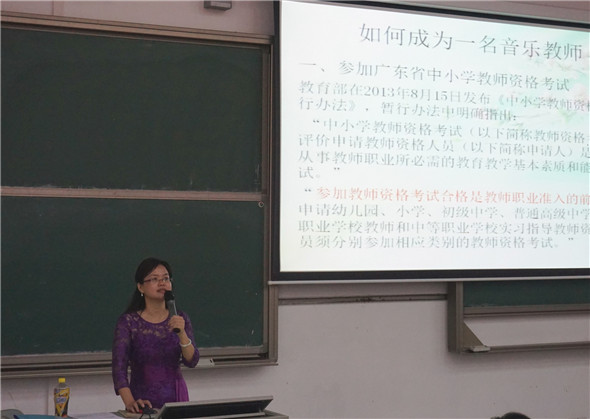 如何成为一名音乐教师
一、参加广东省中小学教师资格考试
教育部在2013年8月15日发布《中小学教师资格
行办法》，暂行办法中明确指出：
“中小学教师资格考试（以下简称教师资格
评价申请教师资格人员（以下简称申请人）是
从事教师职业所必需的教育教学基本素质和能
试。”
“参加教师资格考试合格是教师职业准入的前
申请幼儿园、小学、初级中学、普通高级中学
职业学校教师和中等职业学校实习指导教师资
员须分别参加相应类别的教师资格考试。”